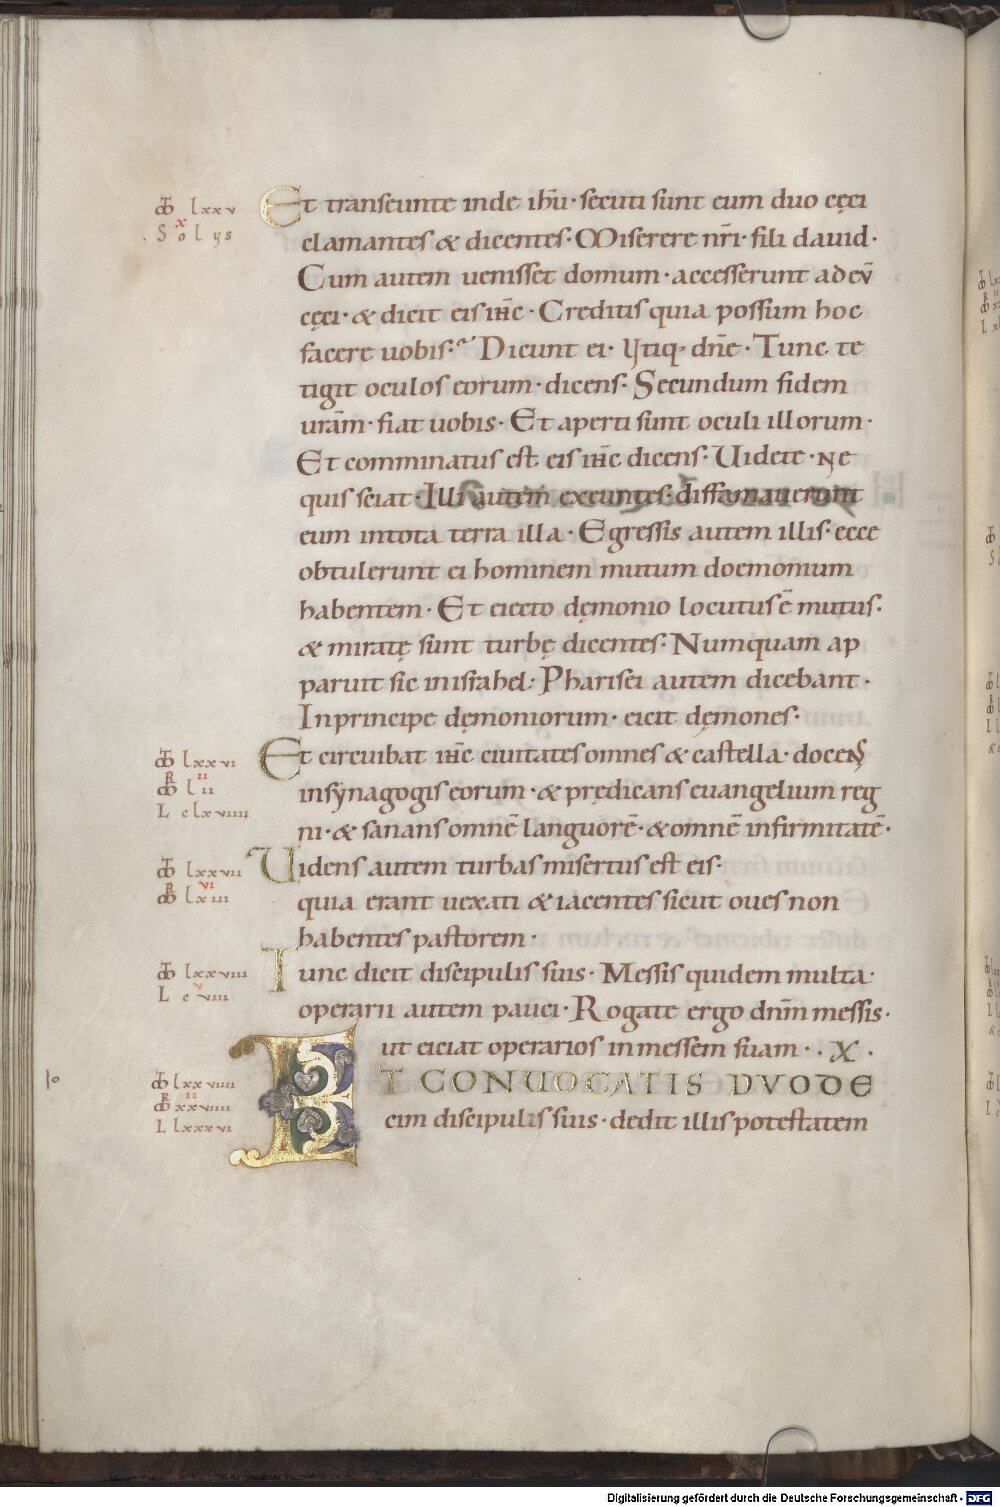 Et transeunte inde ihū· secuti sunt eum duo cęci
clamantes & dicentes· Miserere nr̄i· fili dauid·
Cum autem uenisset domum· accesserunt ad eū
cęci· & dicit eis ih̄c· Creditis quia possum hoc
facere uobis· Dicunt ei· Utiq· dn̄e· Tunc te
tigit oculos eorum· dicens· Secundum fidem
urām· fiat uobis· Et aperti sunt oculi illorum·
Et comminatus est eis ih̄c dicens· Uidete· ne
quis sciat· Illi autem exeuntes· diffamauerunt
eum intota terra illa· Egressis autem illis· ecce
obtulerunt ei hominem mutum doemonium
habentem· Et eiecto dęmonio locutus ē mutus·
& miratę sunt turbę dicentes· Numquam ap
paruit sic inisrahel· Pharisei autem dicebant·
Inprincipe dęmoniorum· eicit dęmones·
Et circuibat ih̄c ciuitates omnes & castella· docens
insynagogis eorum· & prędicans euangelium reg
ni· & sanans omnē languorē· & omnē infirmitatē·
Uidens autem turbas misertus est eis·
quia erant uexati & iacentes sicut oues non
habentes pastorem·
Tunc dicit discipulis suis· Messis quidem multa·
operarii autem pauci· Rogate ergo dnm̄ messis·
ut eiciat operarios inmessem suam· · X ·
ET CONUOCATIS DVODE
cim discipulis suis· dedit illis potestatem
lxxv
x
Solus
lxxvi
ii
lii
L clxviiii
lxxvii
vi
lxiii
lxxviii
v
L cviii
lxxviiii
ii
xxviiii
L lxxxvi
Digitalisierung gefördert durch die Deutsche Forschungsgemeinschaft - DFG